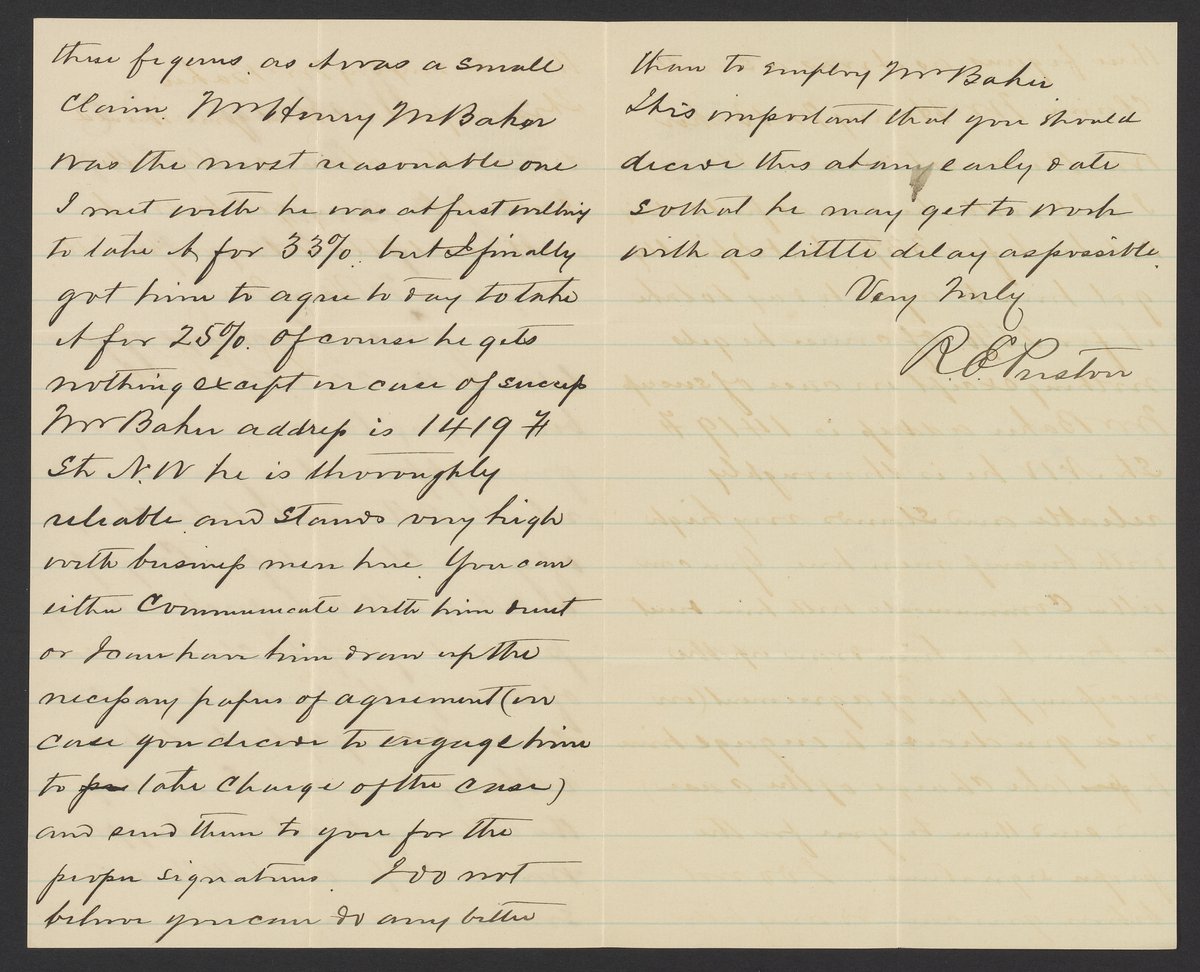 these figures as it was a small
claim. Mr Henry M Baker
was the most reasonable one
I met with he was at first willing
to take it for 33%. but I finally
got him to agree to day to take
it for 25%. Of course he gets
nothing except in case of success
Mr Baker address is 1419 F
St N.W he is thoroughly
reliable and stands very high
with business men here. You can
either communicate with him direct
or I can have him draw up the
necessary papers of agreement (in
case you decide to engage him
to take charge of the case)
and send them to you for the
proper signatures. I do not
believe you can do any better
than to employ Mr Baker.
It is important that you should
decide this at any early date
so that he may get to work
with as little delay as possible.
Very Truly
R. E. Preston